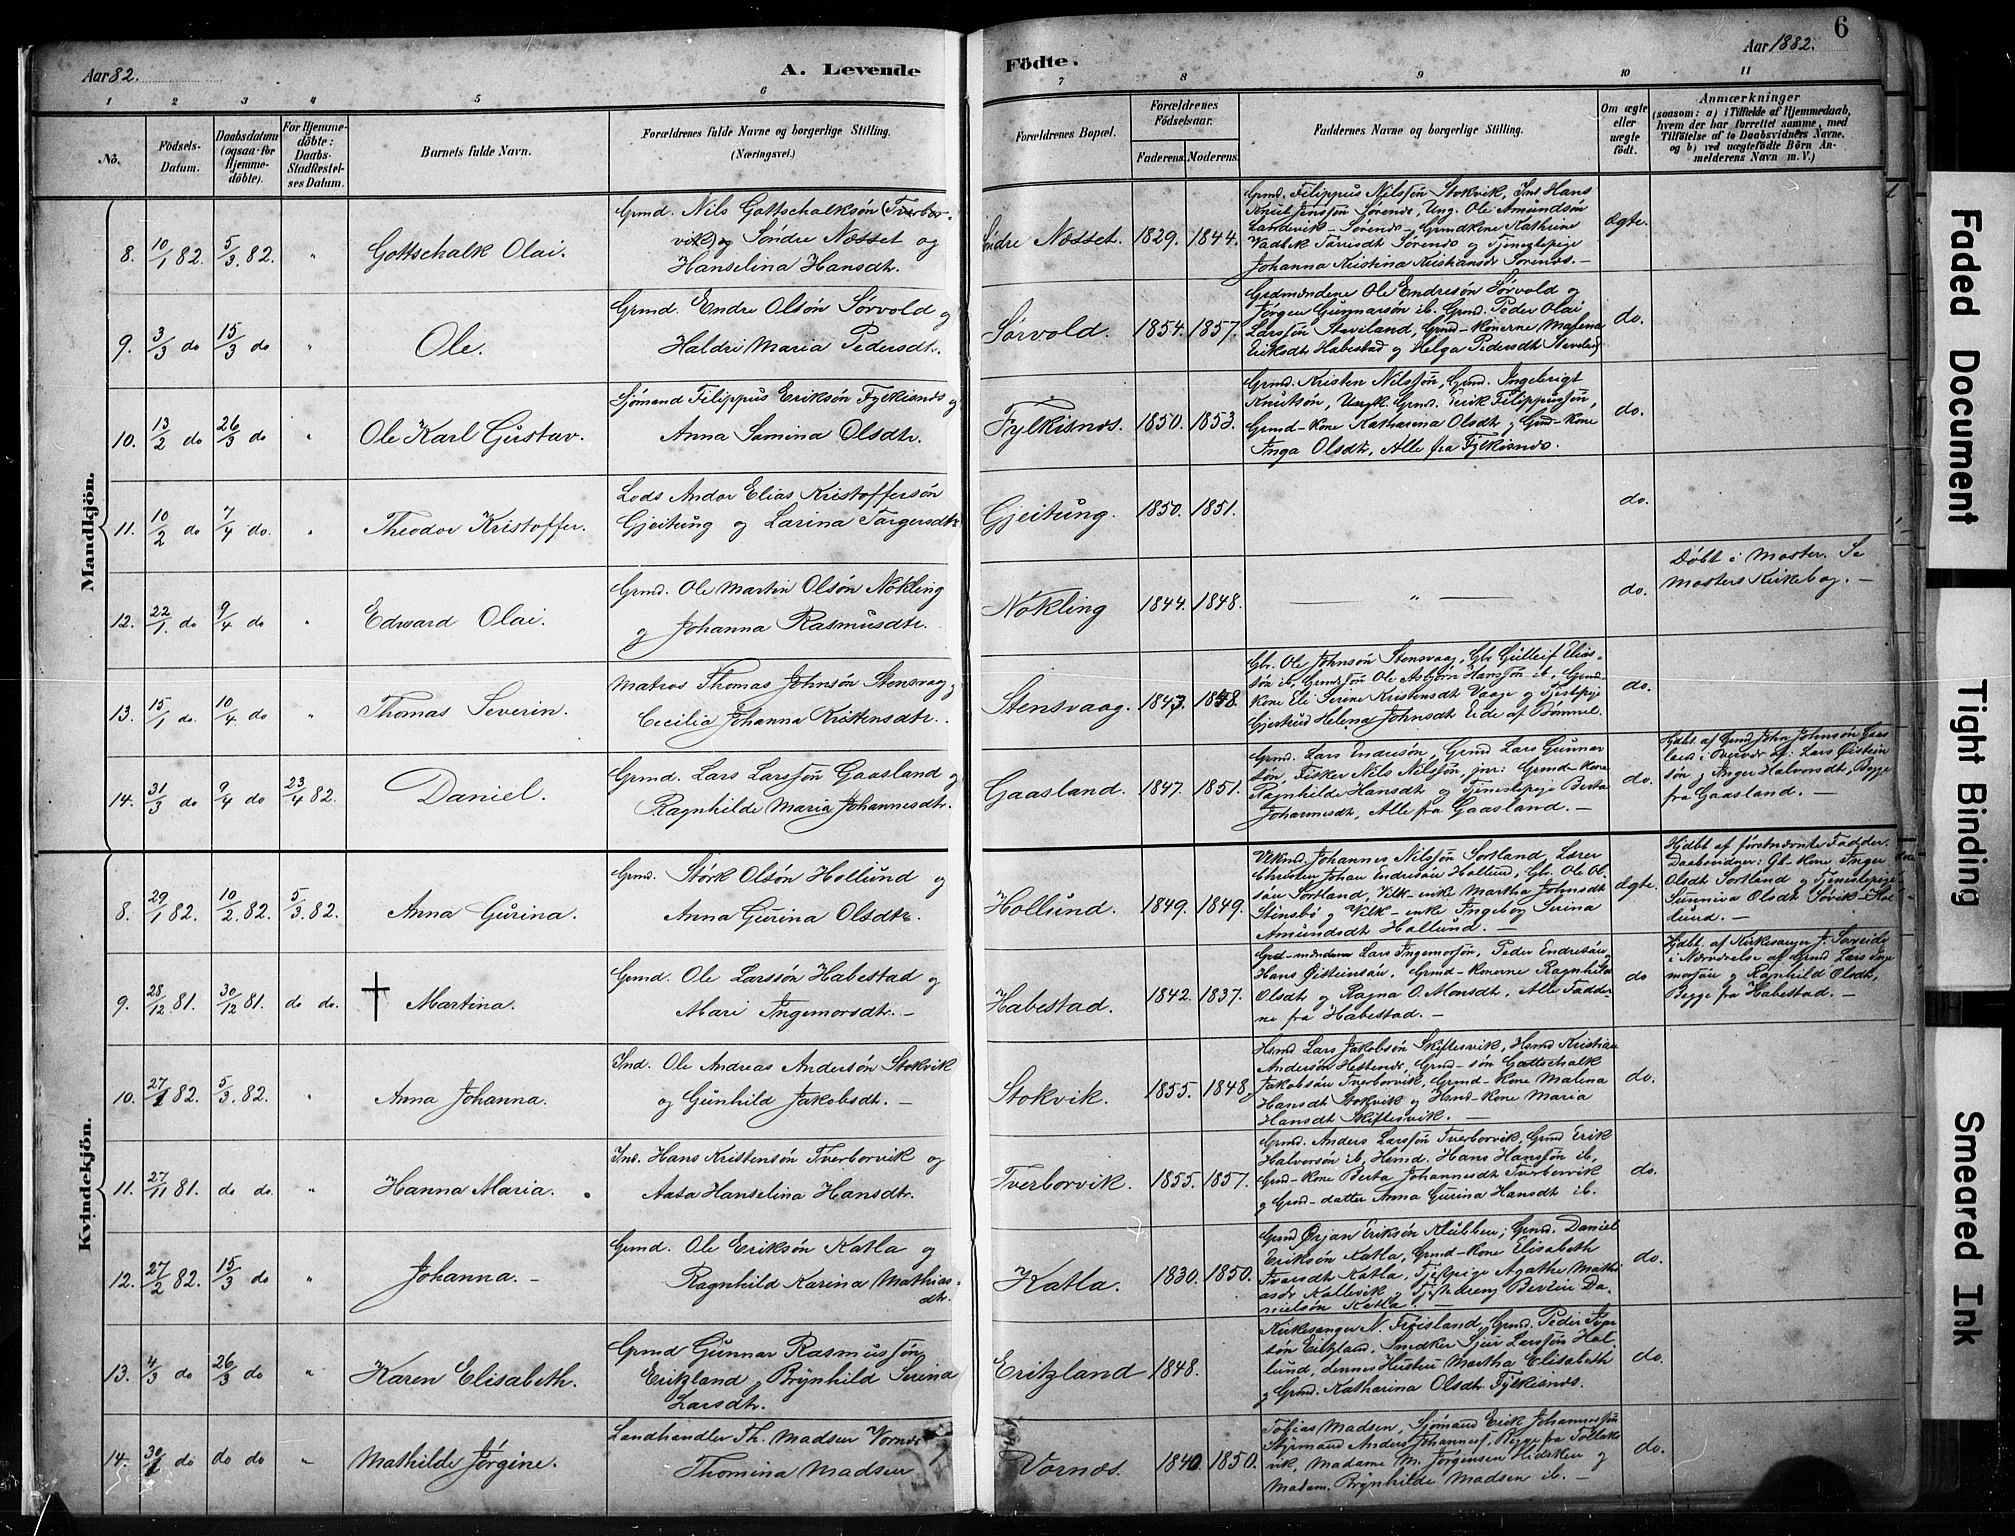 6
Aar 82.
A. Levende
Födte.
Aar 1882.
1 2 3 4 5 6 7 8 9 10 11
No.
Födsels-Datum.
Daabsdatum (ogsaa for Hjemmedöbte).
For Hjemmedöbte: Daabs-Stadfæstelses Datum.
Barnets fulde Navn.
Forældrenes fulde Navne og borgerlige Stilling. (Næringsvei.)
Forældrenes Bopæl.
Forældrenes Födselsaar.
Faderens. Moderens.
Faddernes Navne og borgerlige Stilling.
Om ægte eller uægte födt.
Anmærkninger
(saasom: a) i Tilfælde af Hjemmedaab, hvem der har forrettet samme, med Tilföielse af to Daabsvidners Navne, og b) ved uægtefödte Börn Anmelderens Navn m. V.)
Mandkjön.
8. 10/1 82. 5/3 82. " Gottschalk Olai.
Grmd. Nils Gottschalksön (Tverborvik) og Söndre Næsset og
Hanselina Hansdtr.
Söndre Næsset. 1829. 1844.
Grmd. Filippus Nilssön Stokvik, Ins Hans
Knut Jenssön Sörenes, Ung. Ole Amundsön
Landevik - Sörenes - Grmdkone Kathrine
Johanna Kristina Kristiansdr Sörenes. -
Ægte.
9. 3/3 do 15/3 do " Ole.
Grmd. Endre Olsön Sörvold og
Haldri Maria Pedersdtr.
Sörvold. 1854. 1857.
Grdmændene Ole Endresön Sörvold og
Jörgen Gunnarsön ib. Grmd. Peder Olai
Larssön Staveland, Grmd-konerne Malena
Eriksdtr Habestad og Helga Pedersdt Staveland
do.
10. 13/2 do 26/3 do " Ole Karl Gustav.
Sjömand Filippus Eriksön Fylkisnæs og
Anna Samina Olsdtr.
Fylkisnæs. 1850. 1853.
Grmd. Kristen Nilssön, Grmd. Ingebrigt
Knutsön, Ungk. Grmd. Erik Filippussön,
Grmd-kone Katharina Olsdt og Gmd-kone
Inga Olsdtr, Alle fra Fylkisnæs.
do.
11. 10/2 do 7/4 do. " Theodor Kristoffer.
Lods Andor Elias Kristoffersön
Gjeitung og Larina Torgersdtr
Gjeitung. 1850. 1851.
do.
12. 22/1 do 9/4 do " Edward Olai.
Grmd. Ole Martin Olsön Nökling
og Johanna Rasmusdtr.
Nökling 1844. 1848.
— " —
do.
Döbt i Moster. Se
Mosters Kirkebog. -
13. 15/1 do. 10/4 do " Thomas Severin.
Matros Thomas Johnsön Stensvaag og
Cecilia Johanna Kristensdtr.
Stensvaag. 1843. 1848.
Gbr. Ole Johnsön Stensvaag, Gbr Gulleif Elias-
sön ib, Grmdsön Ole Asbjörn Hanssön ib, Grmd-
kone Eli Serine Kristensdt Vaage og Tjenstepige
Gjertrud Helena Johnsdt Eide af Bömmel.
do.
14. 31/3 do 9/4 do 23/4 82. Daniel.
Grmd. Lars Larssön Gaasland og
Ragnhilde Maria Johannesdtr.
Gaasland. 1847. 1851.
Grmd. Lars Endresön, Grmd Lars Gunnar
sön, Fisker Nils Nilssön, jnr: Grmd-kone
Ragnhilde Hansdt og Tjenestepige Berta
Johannesdt, Alle fra Gaasland. -
do.
Hjdbt. af Grmd John Johnsön Gaas-
land i Overvær af: Lars Öistein
sön og Inger Halvorsdt, Begge
fra Gaasland. -
Kvindekjön.
8. 29/1 82. 10/2 82. 5/3 82. Anna Gurina.
Grmd. Störk Olsön Hollund og
Anna Gurina Olsdtr.
Hollund. 1849. 1849.
Vilkmd. Johannes Nilssön Sortland, Lærer
Christen Johan Endresön Hollund, Gbr. Ole Ol-
sön Sortland, Vilk-enke Martha Johnsdt
Stensbö og Vilk-enke Ingeborg Serina
Amundsdt Hollund. -
Ægte.
Hjdbt af förstnævnte Fadder.
Daabsvidner: Gb-kone Inger
Olsdt Sortland og Tjenestepige
Sunniva Olsdt Sövik-Hol
lund. -
9. 28/12 81. 30/12 81. do do. † Martina.
Grmd. Ole Larssön Habestad og
Mari Ingemorsdtr. -
Habestad. 1842. 1837.
Grd-mændene Lars Ingemorsön, Peder Endresön og
Hans Öisteinsön, Grmd-konerne Ragnhild
Olsdt og Ragna O. Monsdt, Alle Fadder-
ne fra Habestad. -
do
Hjdbt. af Kirkesanger J. Soreide
i Nærværelse af Grmd Lars Inge
morsön og Ragnhild Olsdt,
Begge fra Habestad. -
10. 27/1 82. 5/3 82. " Anna Johanna.
Ind. Ole Andreas Andersön Stokvik
og Gunhild Jakobsdt. -
Stokvik. 1855. 1848.
Hsmd Lars Jakobsön Skiftesvik, Hsmd Kristian
Andersön Hestenes, Grmd-sön Gottschalk
Jakobsön Tverborvik, Grmd-kone Malena
Hansdt Stokvik og Hsmd-kone Maria
Hansdt Skiftesvik. -
do.
11. 27/11 81. do do. " Hanna Maria.
Ins. Hans Kristensön Tverborvik og
Aasa Hanselina Hansdtr.
Tverborvik. 1855. 1857.
Grmd. Anders Larssön Tverborvik, Grmd Erik
Halvorsön ib, Hsmd. Hans Hanssön ib,
Grmd-kone Berta Johannesdt Tverborvik
og Grmd-datter Anna Gurina Hansdt ib.
do.
12. 27/2 82. 15/3 do " Johanna. -
Grmd. Ole Eriksön Katla og
Ragnhild Karina Mathias-
dtr.
Katla. 1830. 1850.
Grmd Örjan Eriksön Klubben, Grmd. Daniel
Eriksön Katla, Grmd-kone Elisabeth
Ivarsdt Katla, Tjestpige Agathe Mathi
asdr Kallevik og Tjestedreng Bertin Da-
nielsön Katla. -
do.
13. 4/3 do 26/3 do " Karen Elisabeth.
Grmd Gunnar Rasmussön
Eritzland og Brynhild Serina
Larsdtr.
Eritzland 1848.
Kirkesanger N. Fröisland, Grmd. Peder Iver
sön Eritzland, Smedker Sjur Larssön Hol-
lund, dennes Hustru Martha Elisabeth
og Grmd. Katharina Olsdt Fylkisnæs.
do.
14. 30/1 do do do " Mathilde Jörgine.
Landhandler Th. Madsen Vornæs
Thomina Madsen
Vornæs. 1840. 1850.
Tobias Madsen, Sjömand Erik Johannessön
Styrmand Anders Johanness, Begge fra Folleks
vik, Madame M. Jörgensen Hidsken og
Madam. Brynhilde Madsen ib. -
do.
Faded Document
Tight Binding
Smeared Ink